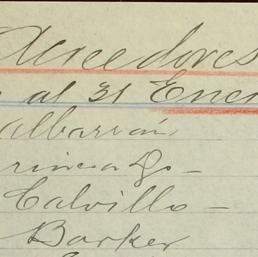 Acreedores
al 31 Ener
albarrán
rincon Js -
Calvillo -
Barker